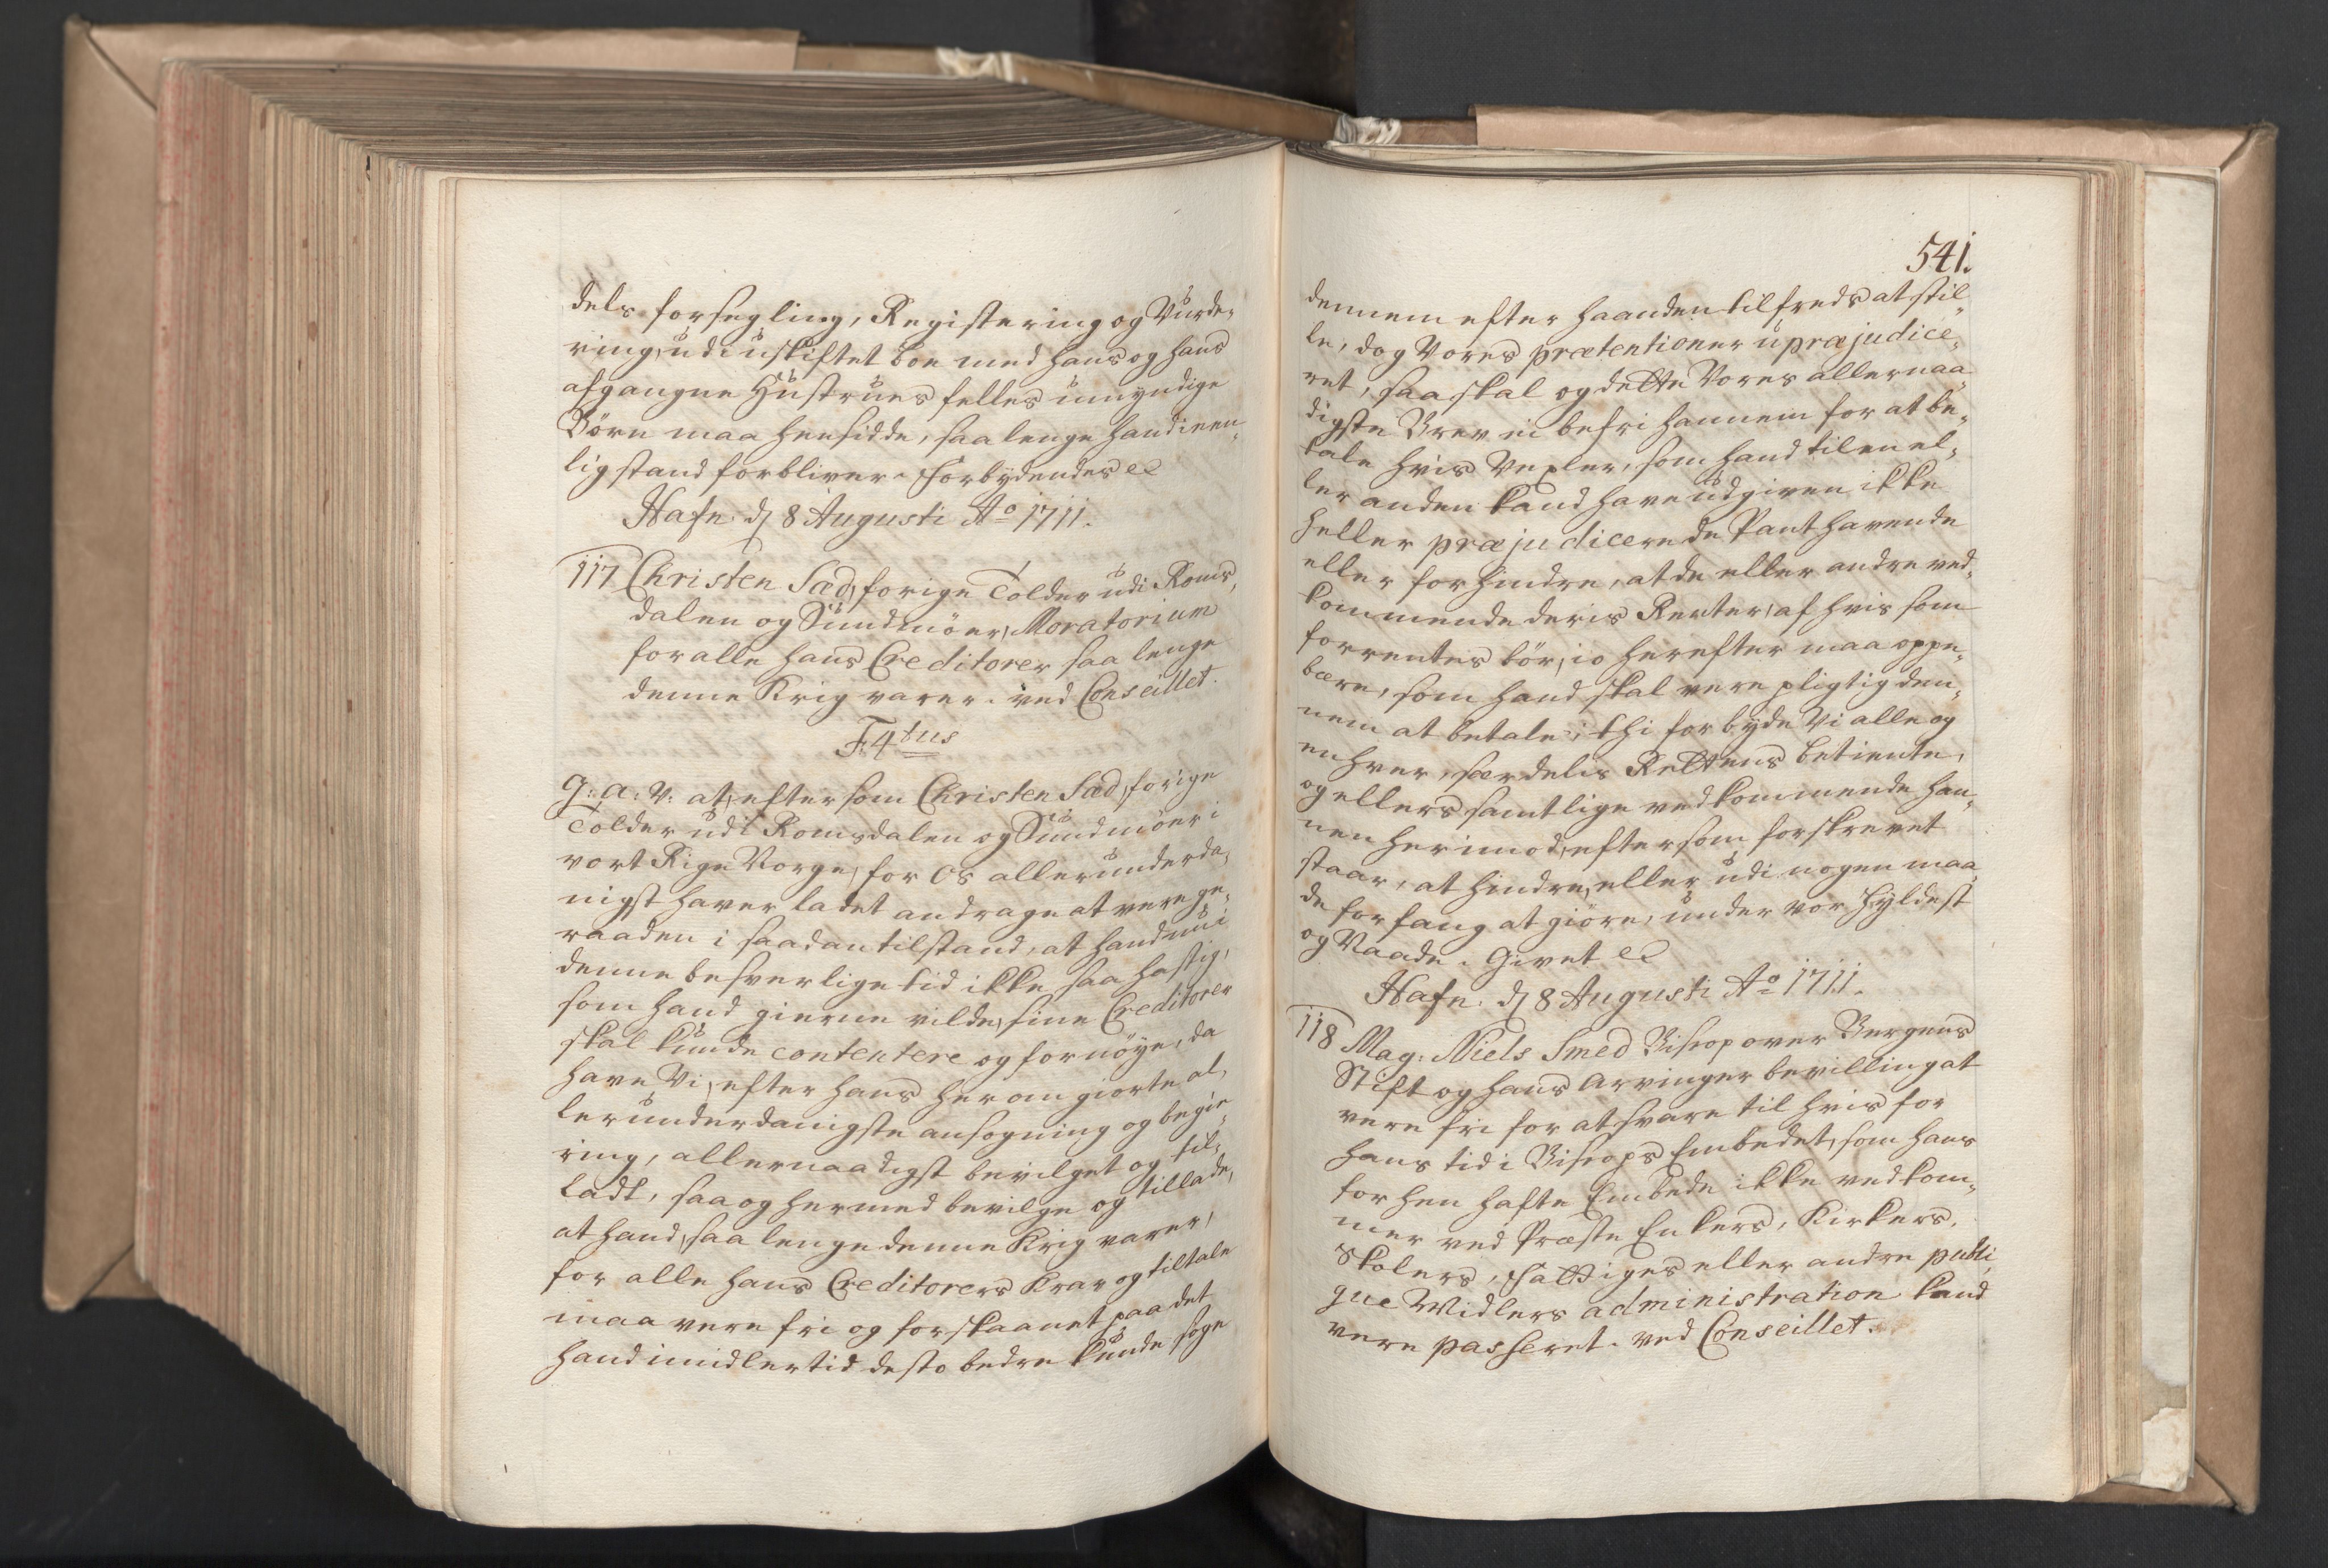 dels forsegling, Registering og Vurde-
ring, udi uskiftet boe med hans og hans
afgangne Hustrues felles umyndige
Börn maa hensidde, saa lenge hand i een-
lig stand forbliver. Forbydendes etc
Hafn. d. 8 Augusti Ao 1711.
117 Christen Sæd, forige Tolder udi Roms-
dalen og Sundmöer, Moratorium
for alle hans Creditorer saa lenge
denne Krig varer. ved Conseillet.
F. 4tus
G: a: V: at, eftersom Christen Sæd, forige
Tolder udi Romsdalen og Sundmöer i
vort Rige Norge, for Os allerunderda-
nigst haver ladet andrage at vere ge-
raaden i saadan tilstand, at hand nu i
denne besverlige tid ikke saa hastig,
som hand gierne vilde, sine Creditorer
skal kunde contentere og fornöye, da
have Vi, efter hans herom giorte al-
lerunderdanigste ansogning og begie-
ring, allernaadigst bevilget og til-
ladt, saa og hermed bevilge og tillade,
at hand, saa lenge denne Krig varer,
for alle hans Creditorers Krav og tiltale
maa vere fri og forskaanet paa det
hand imidlertid desto bedre kunde soge
541.
dennem efter haanden tilfreds at stil-
le, dog Vores prætentioner upræjudice-
ret, saa skal og dette Vores allernaa-
digste Brev ei befri hannem for at be-
tale hvis Vexler, som hand til en el-
ler anden kand have udgiven ikke
heller præjudicere de Pant havende
eller forhindre, at de eller andre ved-
kommende deris Renter, af hvis som
forrentes bör, io herefter maa oppe-
bære, som hand skal vere pligtig den-
nem at betale; thi forbyde Vi alle og
enhver, særdelis Rettens betiente,
og ellers samtlige vedkommende han-
nem herimod, eftersom forskrevet
staar, at hindre, eller udi nogen maa-
de forfang at giöre, under vor Hyldest
og Naade. Givet etc
Hafn. d. 8 Augusti Ao 1711.
118 Mag: Niels Smed Biscop over Bergens
Stift og hans Arvinger bevilling at
vere fri for at svare til hvis for
hans tid i Biscops Embedet, som hans
forhen hafte Embede ikke vedkom-
mer ved Præste Enkers, Kirkers,
Skolers, Fattiges eller andre publi-
que Midlers administration kand
vere passeret. ved Conseillet.